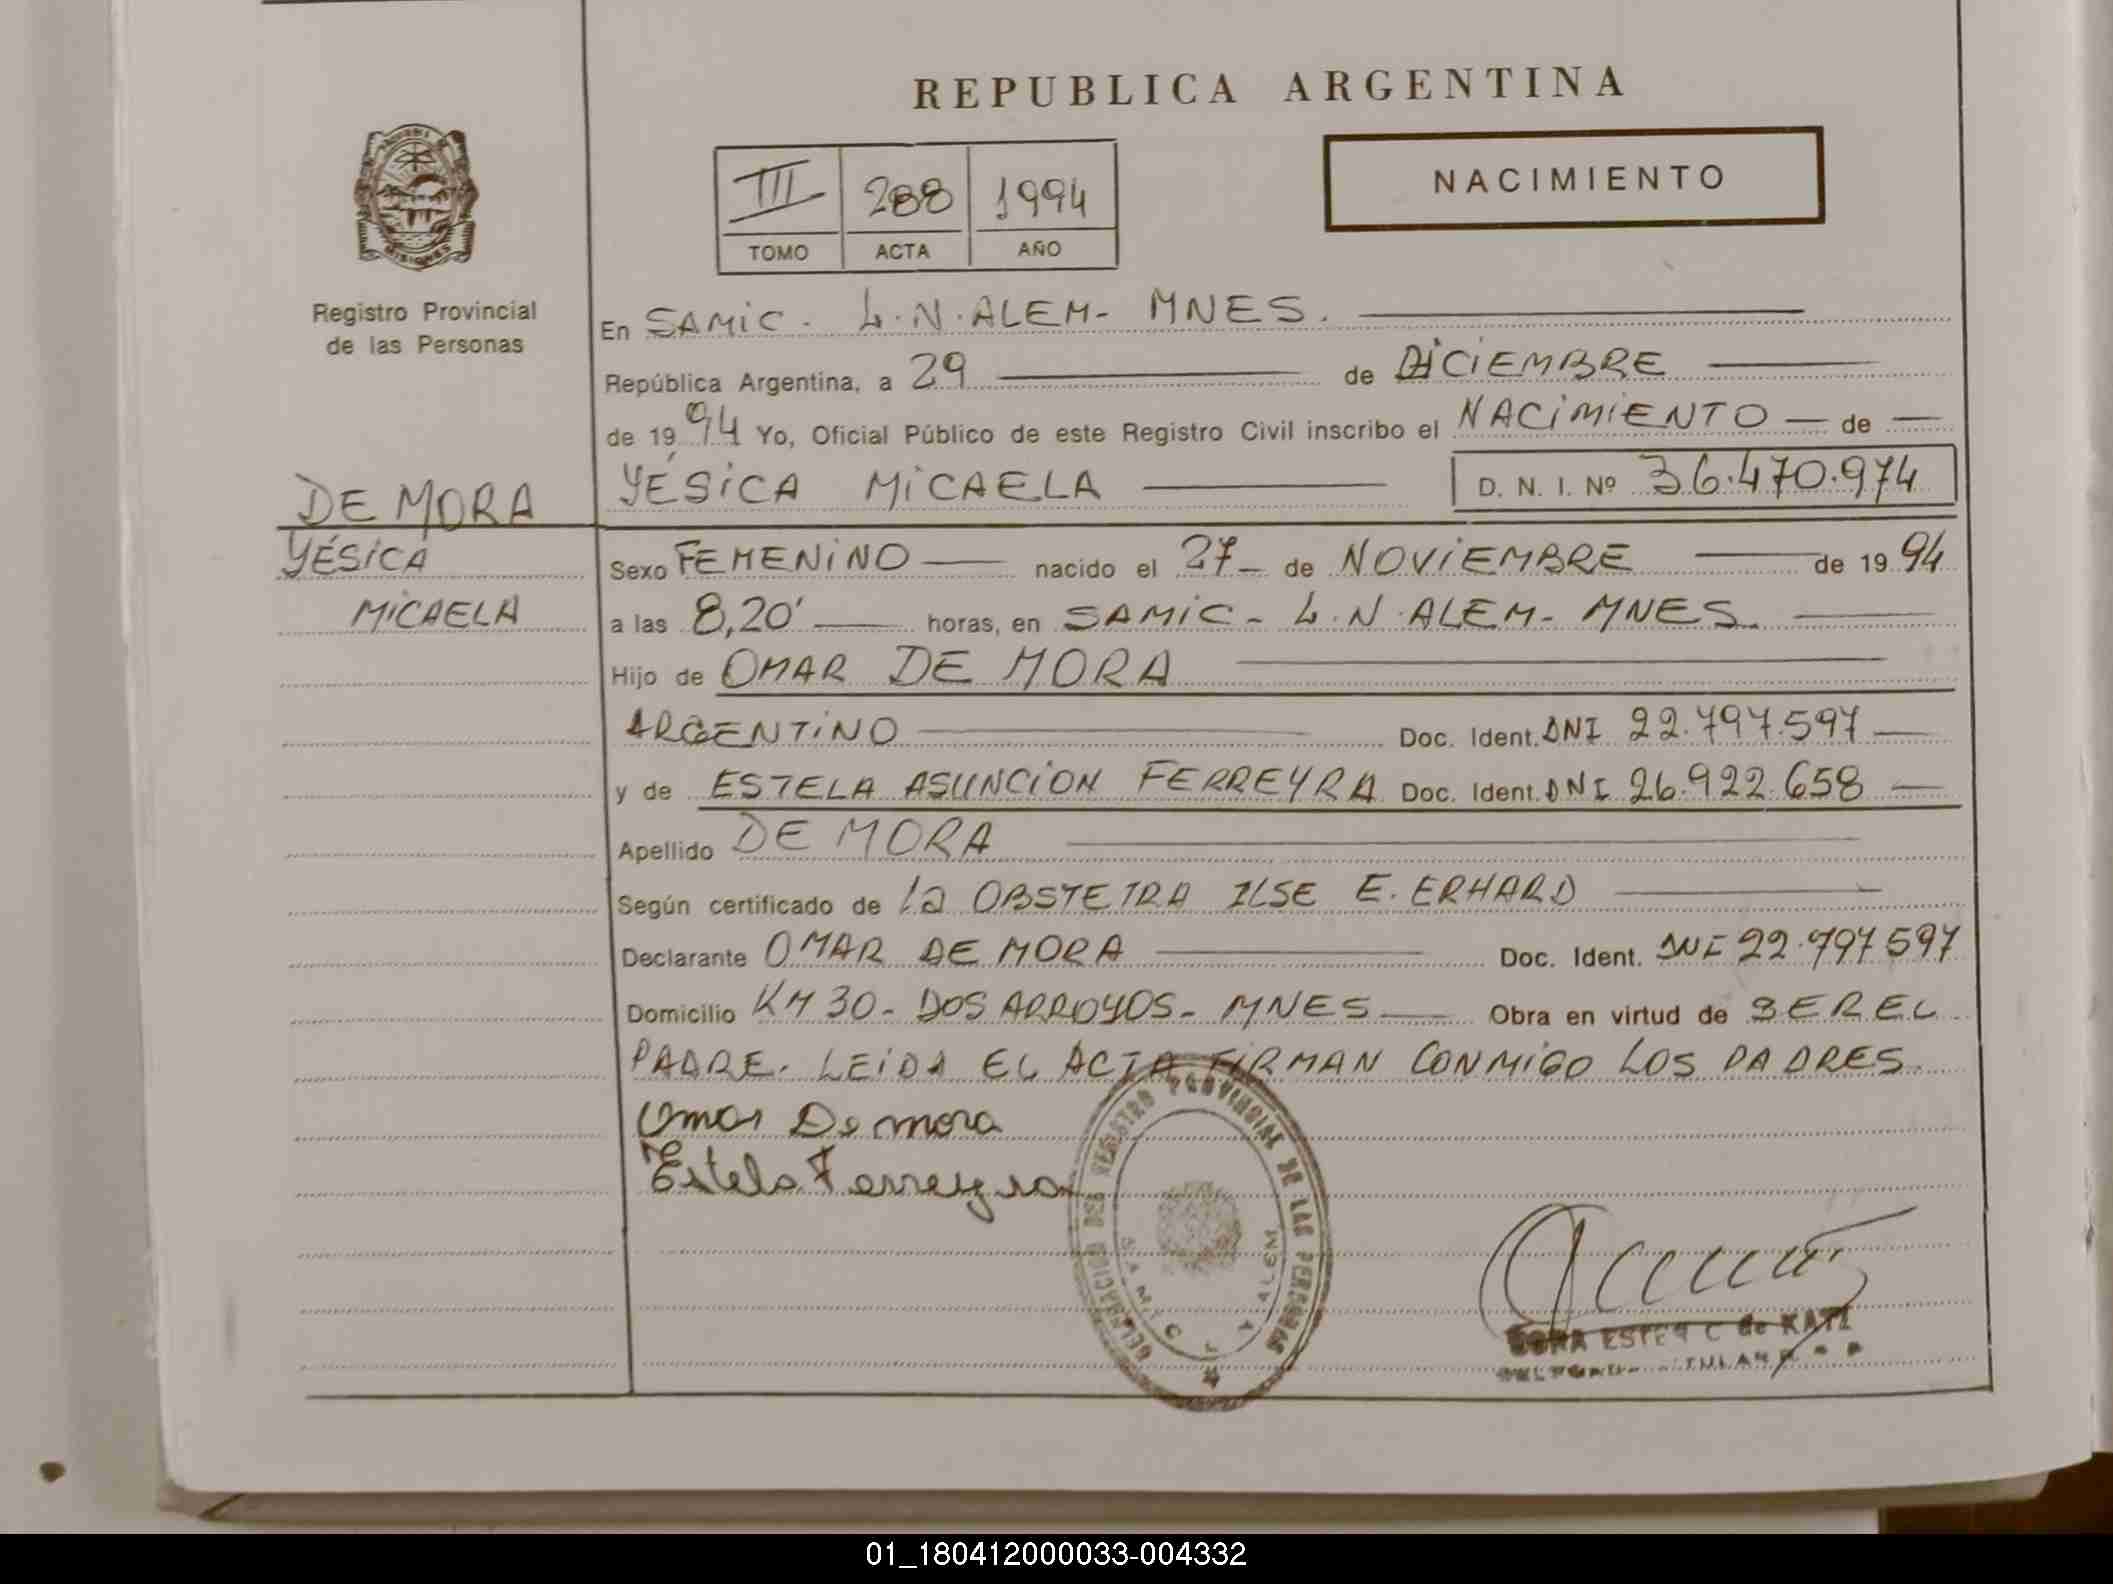 REPUBLICA ARGENTINA
MISIONES
Registro Provincial
de las Personas
III 288 1994
TOMO ACTA AÑO
NACIMIENTO
En SAMIC. L.N.ALEM- MNES.
República Argentina, a 29 de DICIEMBRE
de 19 94 Yo, Oficial Público de este Registro Civil inscribo el NACIMIENTO de
YÉSICA MICAELA D. N. I. Nº 36.470.974
DE MORA
YÉSICA
MICAELA
Sexo FEMENINO nacido el 27 de NOVIEMBRE de 19 94
a las 8,20' horas, en SAMIC- L.N.ALEM- MNES.
Hijo de OMAR DE MORA
ARGENTINO Doc. Ident. DNI 22.797.597
y de ESTELA ASUNCION FERREYRA Doc. Ident. DNI 26.922.658
Apellido DE MORA
Según certificado de la OBSTETRA ILSE E. ERHARD
Declarante OMAR DE MORA Doc. Ident. DNI 22.797597
Domicilio KM 30- DOS ARROYOS- MNES Obra en virtud de SER EL
PADRE. LEIDA EL ACTA FIRMAN CONMIGO LOS PADRES.
Omar De mora
Estela Ferreyra
DELEGACION DEL REGISTRO PROVINCIAL DE LAS PERSONAS
SAMIC L. ALEM
ESTER C de KATZ
01_180412000033-004332